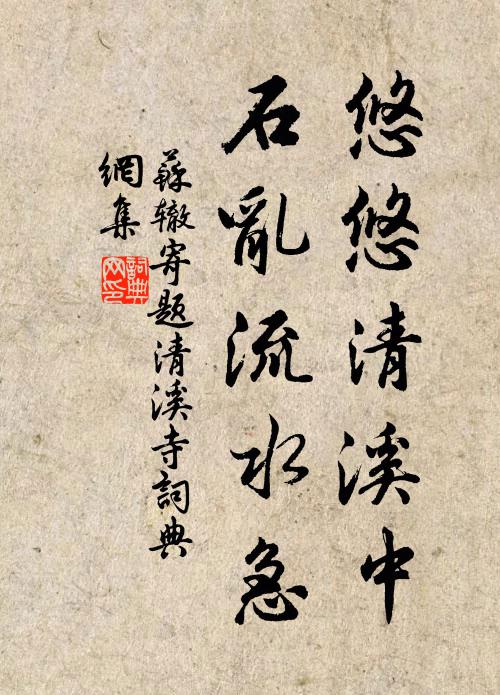 悠悠清溪中
石亂流水急
蘇辙寄题清溪寺詞典
網集
詞典网印